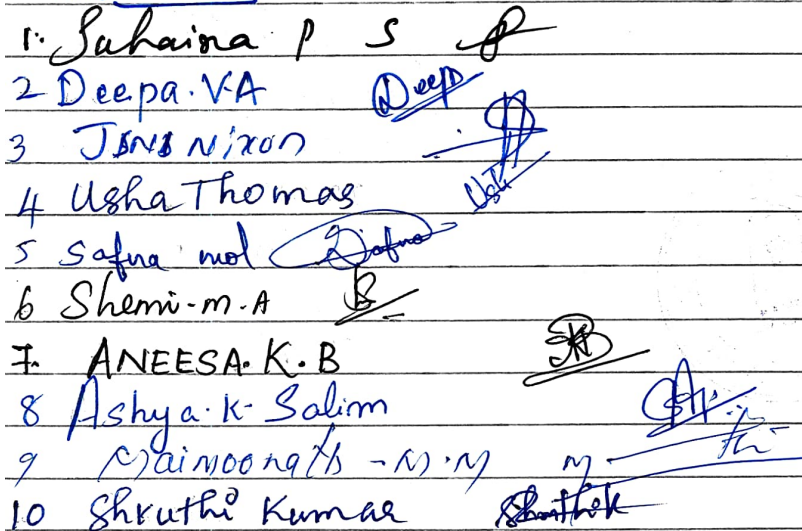 1. Suhaina P S
2 Deepa.V.A Deep
3 JINI Nixon
4 Usha Thomas Ush
5 Safna mol Safna
6 Shemi-m.A
7. ANEESA.K.B
8 Ashya.K.Salim
9 Maimoonath-M.M
10 Shruthi Kumar Shruthik